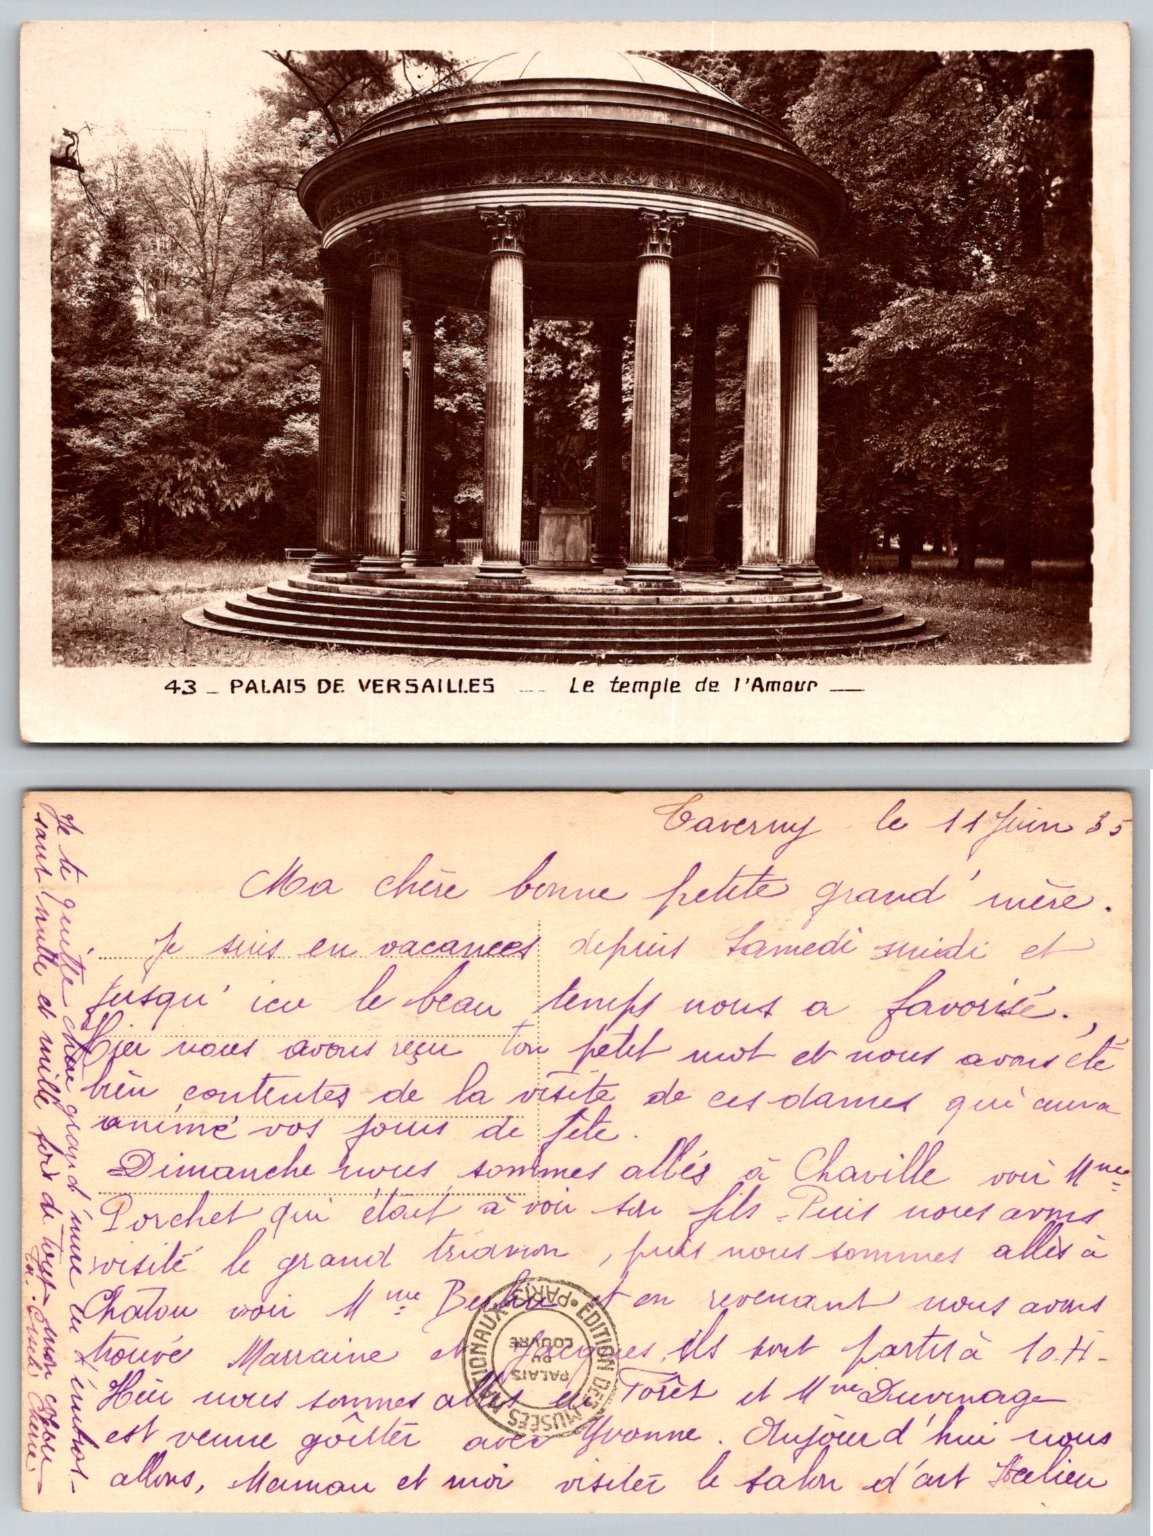 43 _ PALAIS DE VERSAILLES __ Le temple de l'Amour __
Taverny le 11 Juin 35
Ma chère bonne petite grand' mère.
Je suis en vacances depuis Samedi midi et
jusqu' ici le beau temps nous a favorisé.
Hier nous avons reçu ton petit mot et nous avons été
bien contentes de la visite de ces dames qui aura
animé vos jours de fête.
Dimanche nous sommes allés à Chaville voir Mme
Porchet qui était à voir son fils. Puis nous avons
visité le grand trianon, puis nous sommes allés à
Chatou voir Mme et en revenant nous avons
trouvé Marraine et Jacques, ils sont partis à 10.H-
Hier nous sommes allés en Forêt et Mme Duvernage
est venue goûter avec Yvonne. Aujourd'hui nous
allons, Maman et moi visiter le salon d'art Italien
Je te quitte chère grand' mère en t'embras-
sant mille et mille fois de
EDITION DES MUSÉES NATIONAUX • PARIS •
PALAIS
DU
LOUVRE